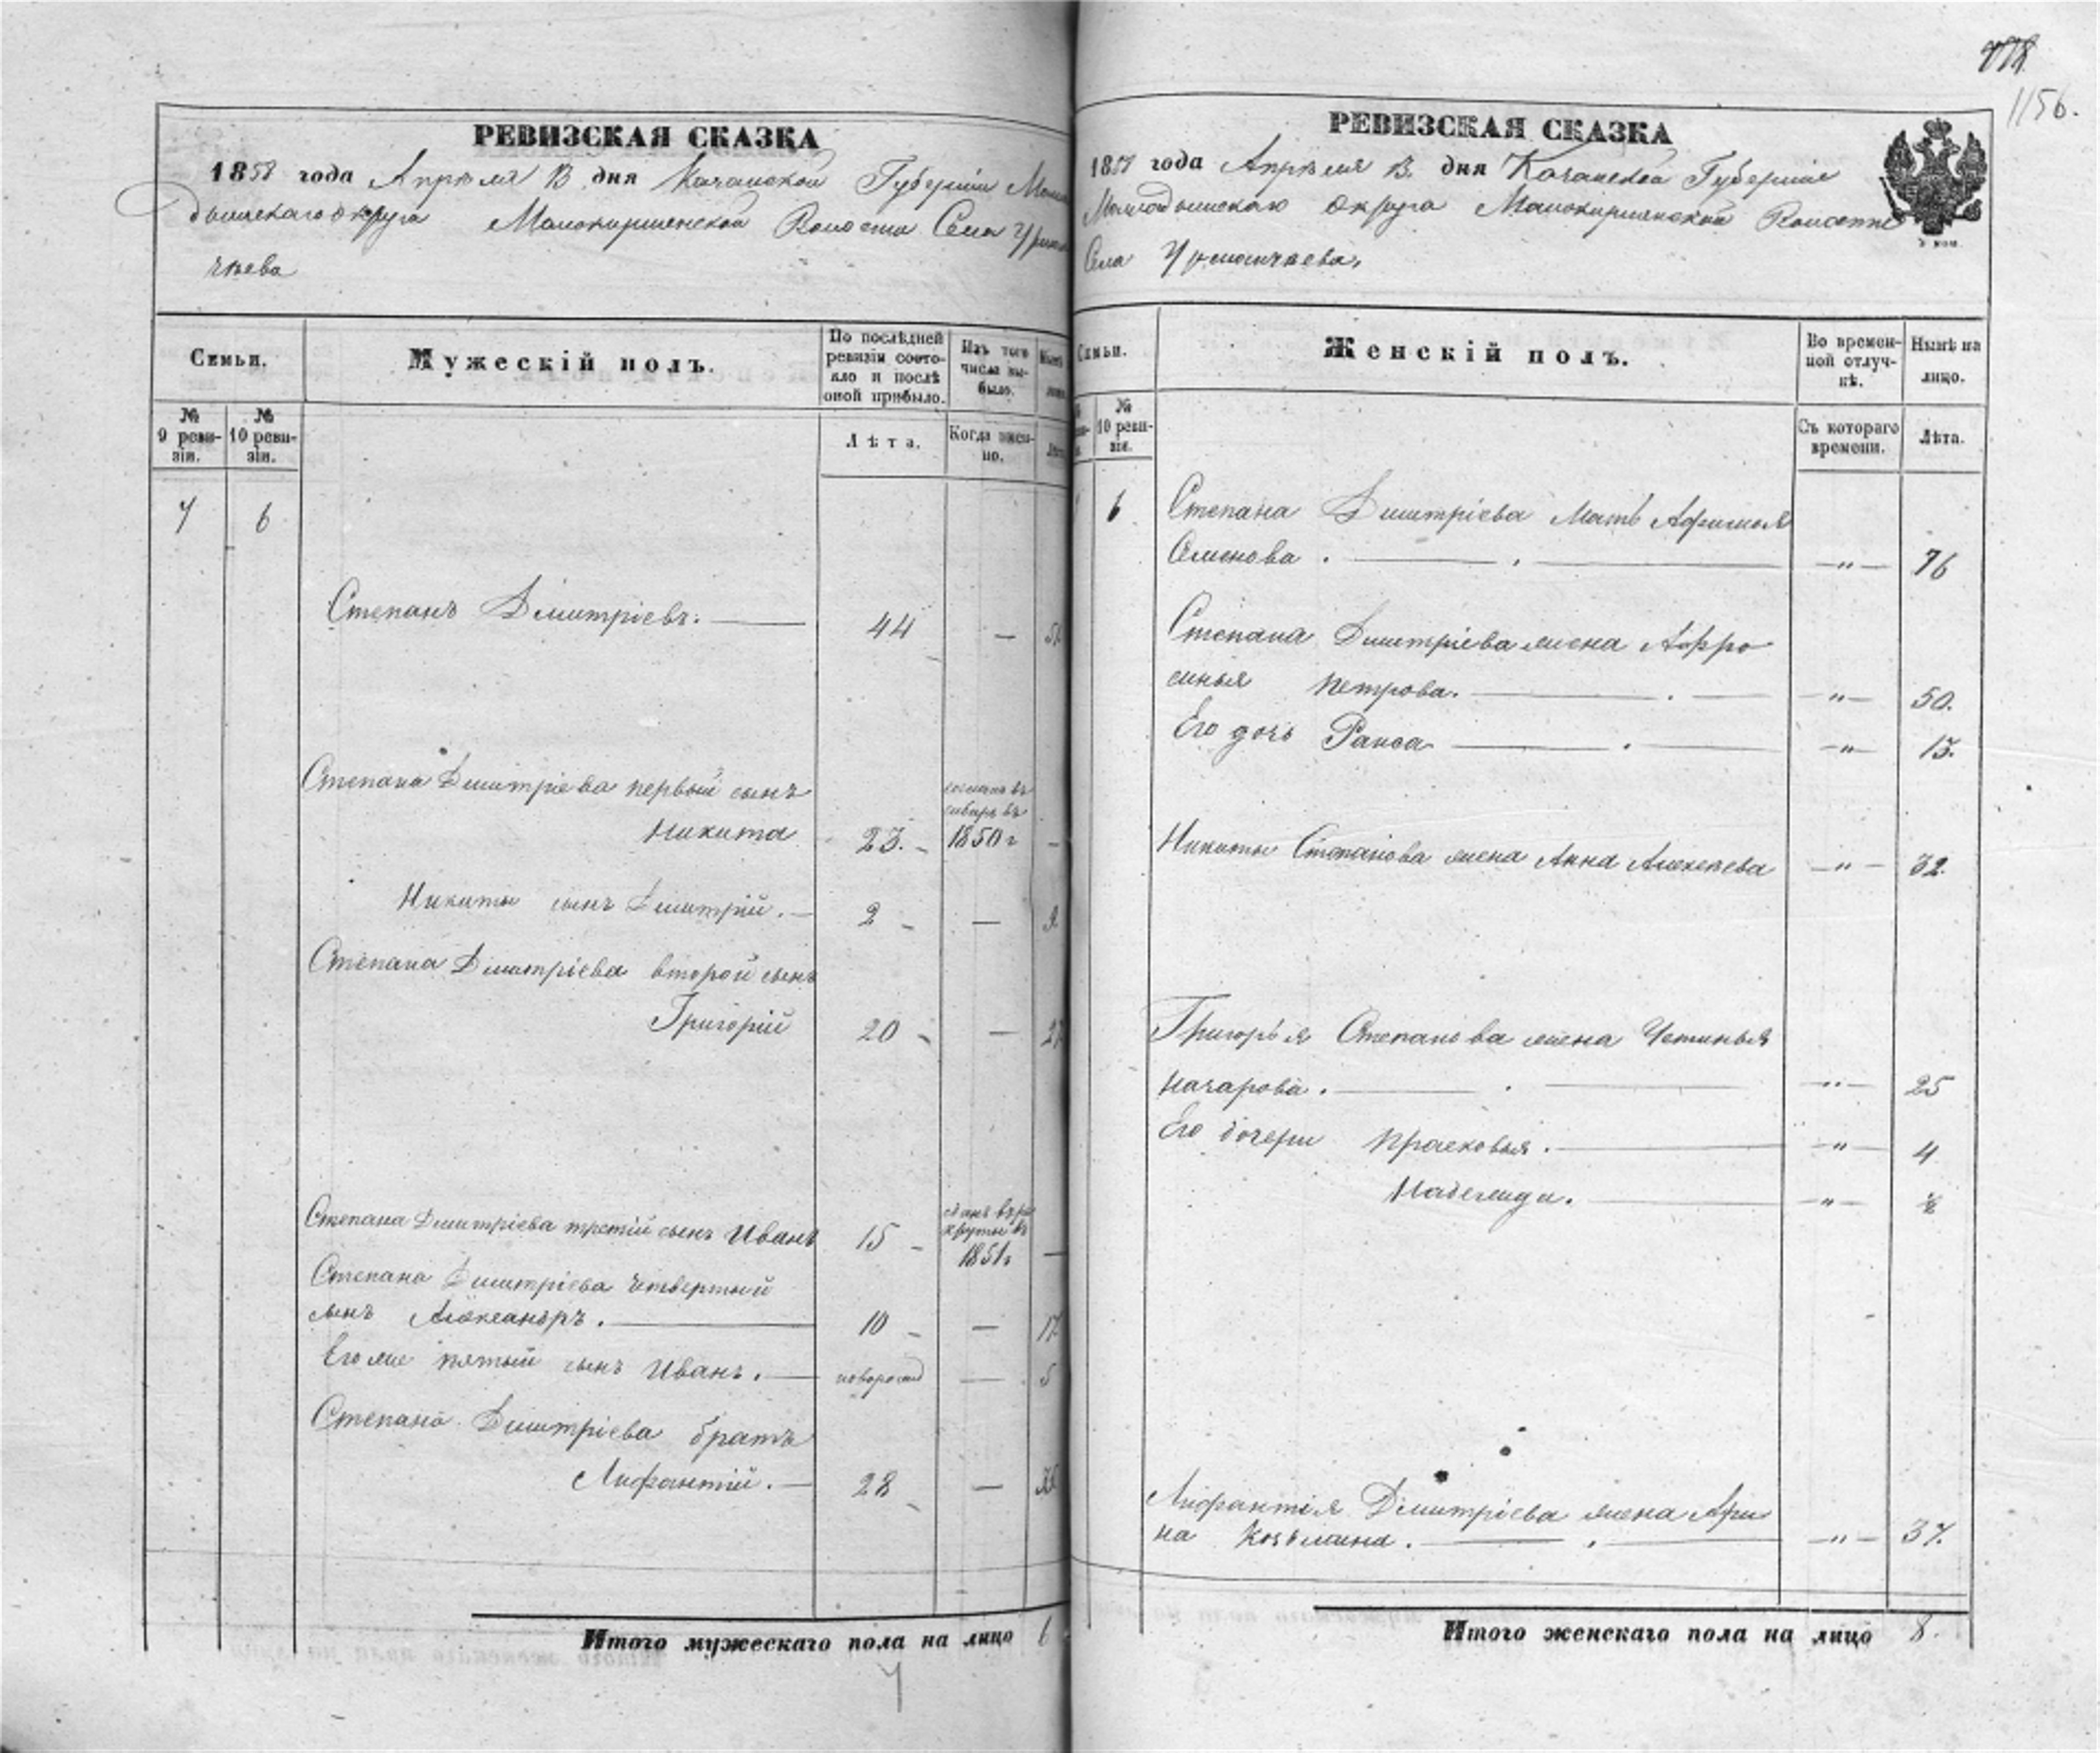 1156.
РЕВИЗСКАЯ СКАЗКА
1858 года Апреля 13 дня Казанской Губернiи
дышскаго округа Малокирменской Волости Села
чѣева
Семьи.
Мужескiй полъ.
По послѣдней ревизiи состояло и послѣ оной прибыло.
Изъ того числа выбыло.
№ 9 ревизiи.
№ 10 ревизiи.
Лѣта.
Когда именно.
7 6
Степанъ Димитрiевъ. — 44 —
Степана Димитрiева первый сынъ
Никита 23. сосланъ въ сибирь въ 1850 г —
Никиты сынъ Димитрiй. — 2 — 9.
Степана Димитрiева второй сынъ
Григорiй 20 — 27
Степана Димитрiева третiй сынъ Иванъ 15 рекруты въ 1851 г —
Степана Димитрiева четвертый
сынъ Александръ. — 10 — 17.
Его же пятый сынъ Иванъ. — новорожд — 5
Степана Димитрiева братъ
Лифантiй. — 28 —
Итого мужескаго пола на лицо 6
РЕВИЗСКАЯ СКАЗКА
1858 года Апреля 13. дня Казанской Губернiи
Мамадышскаго округа Малокирменской Волости
Села Урясьтчиева.
Семьи.
Женскiй полъ.
Во временной отлучкѣ.
Нынѣ на лицо.
№ 10 ревизiи.
Съ котораго времени.
Лѣта.
6 Степана Димитрiева Мать Афимья
Семенова . — „ — 76
Степана Димитрiева жена Афро
синья Петрова. — „ — 50.
Его дочь Раиса — „ — 15.
Никиты Степанова жена Анна Алексеева — „ — 32.
Григорья Степанова жена Устинья
Назарова. — „ — 25
Его дочери Прасковья. — „ — 4
Надежда. — „ — ½
Лифантiя Димитрiева жена Ари
на Козьмина. — „ — 37.
Итого женскаго пола на лицо 8.